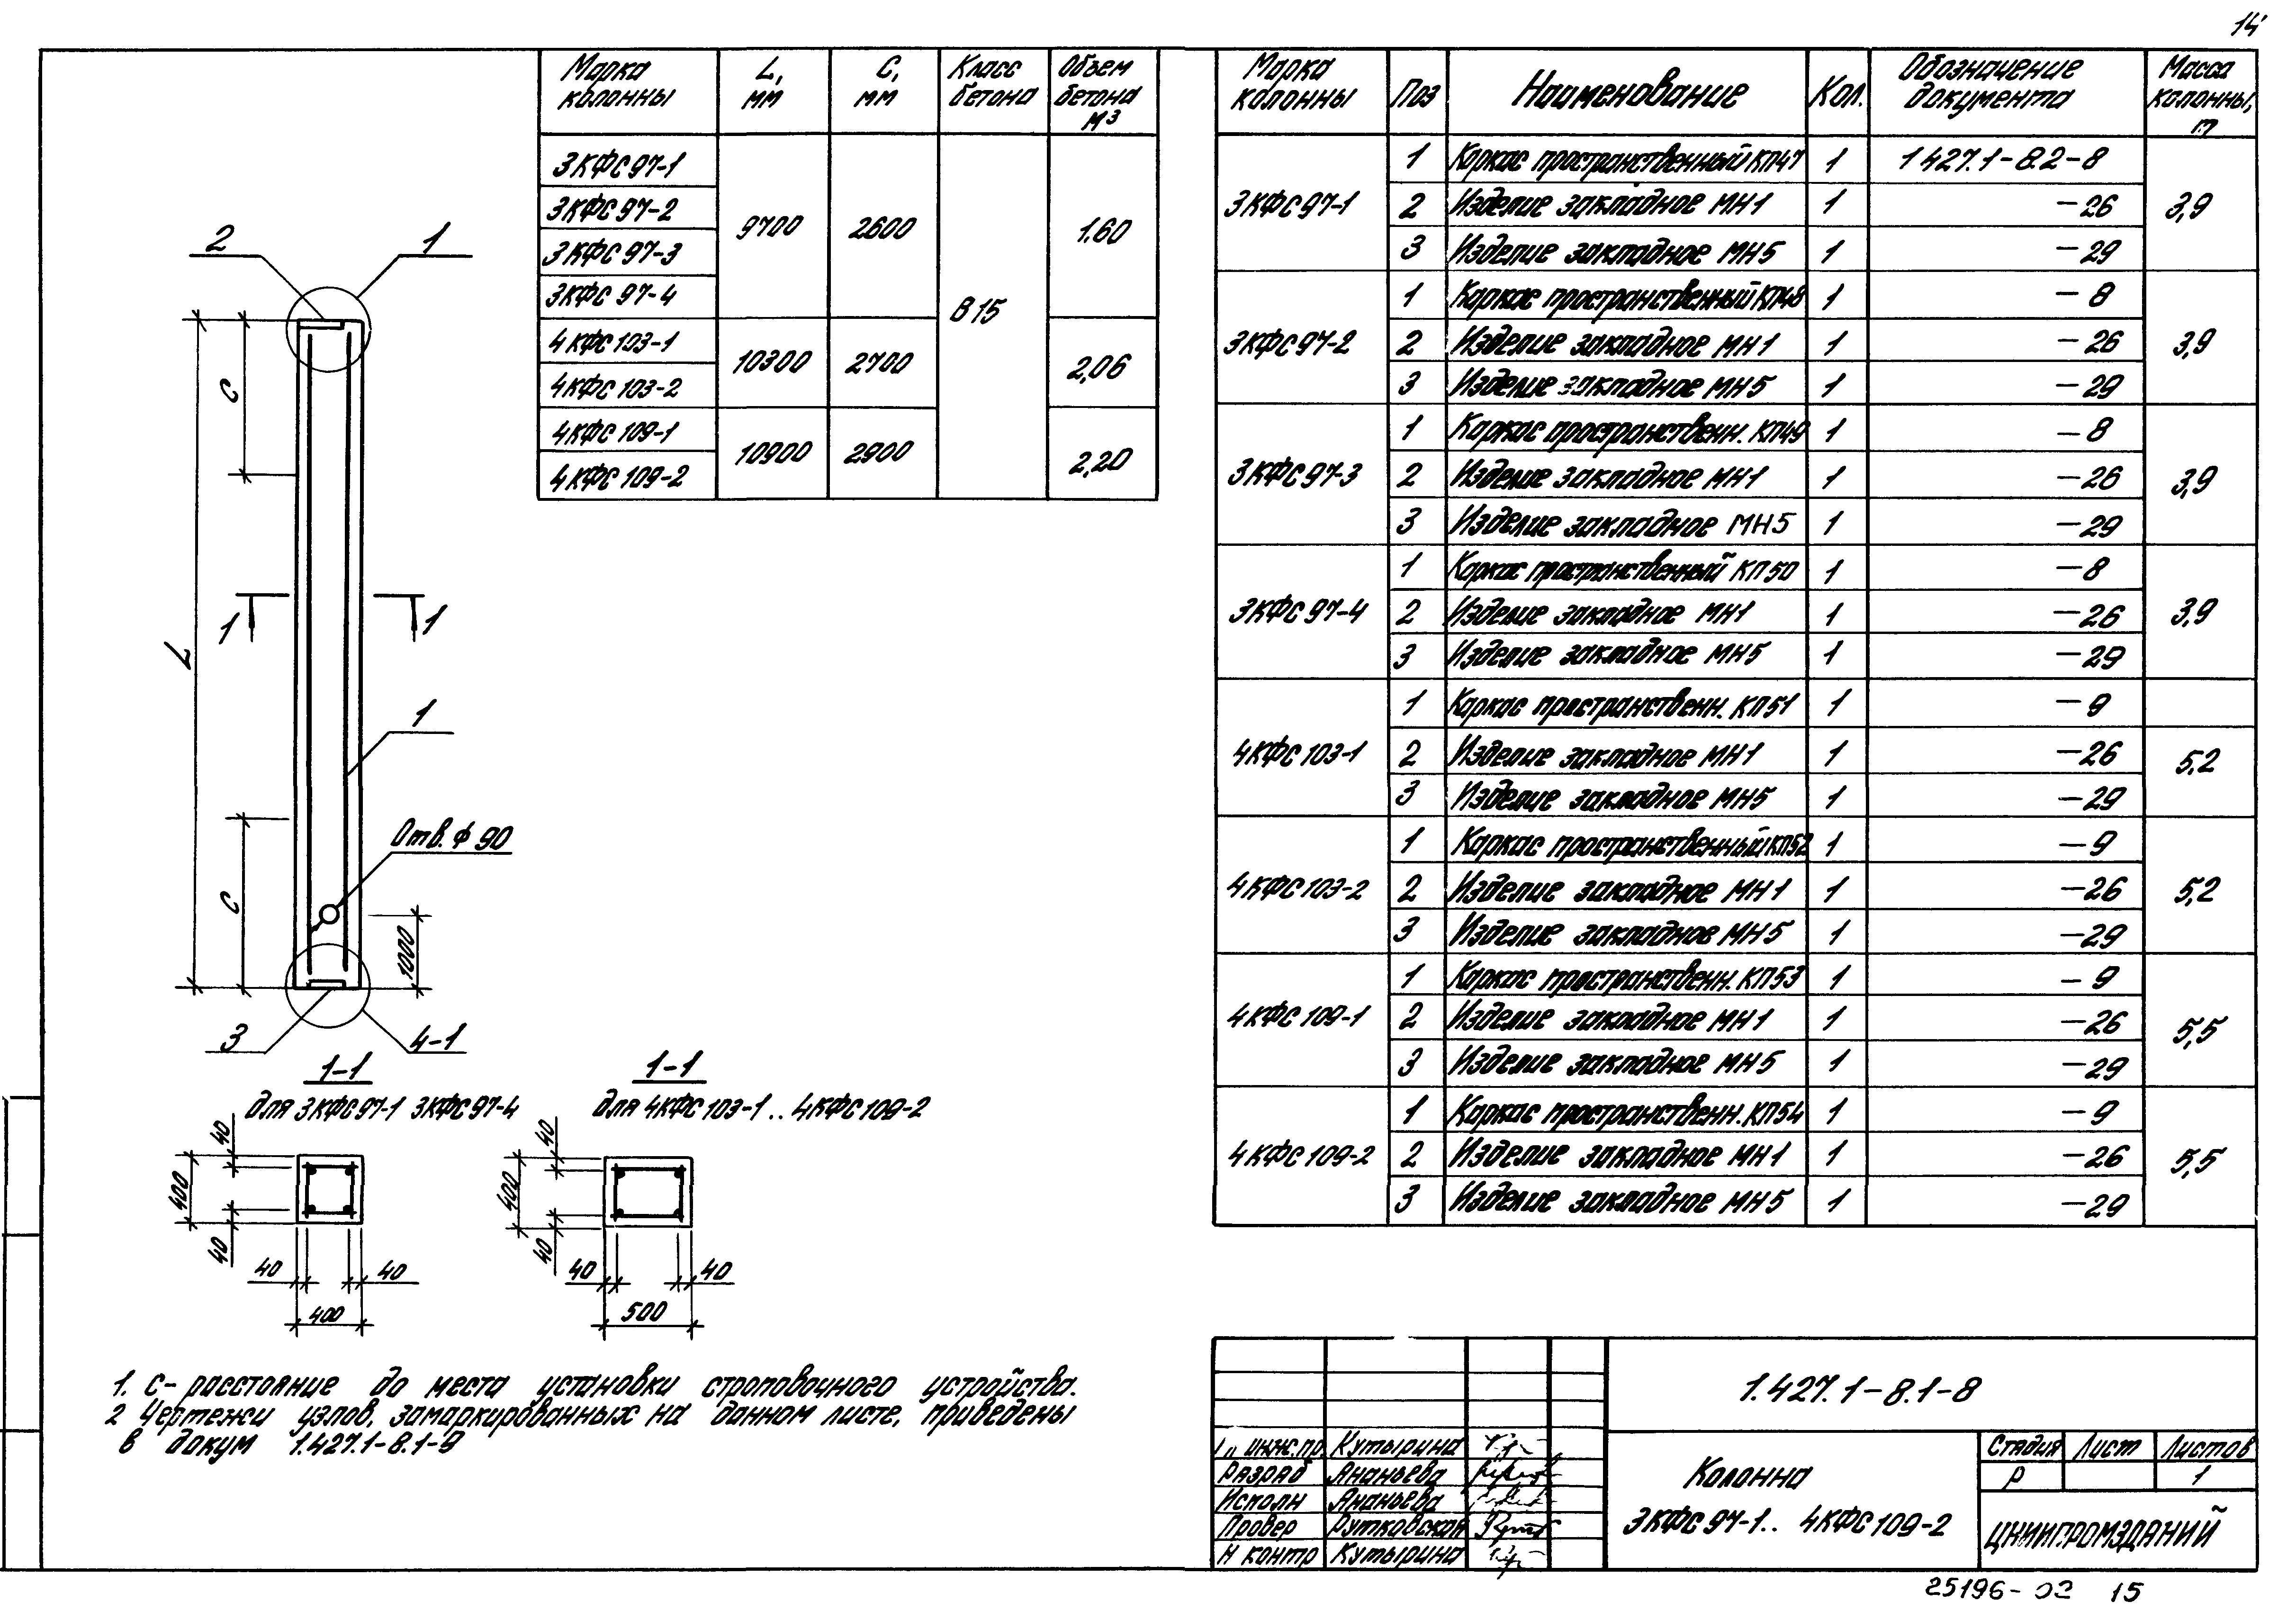 14
Марка колонны | L, мм | C, мм | Класс бетона | Объем бетона м³
3КФС97-1 | 9700 | 2600 | В15 | 1.60
3КФС97-2
3КФС97-3
3КФС97-4
4КФС103-1 | 10300 | 2700 | 2,06
4КФС103-2
4КФС109-1 | 10900 | 2900 | 2,20
4КФС109-2
Марка колонны | Поз | Наименование | Кол. | Обозначение документа | Масса колонны, т
3КФС97-1 | 1 | Каркас пространственный КП47 | 1 | 1427.1-8.2-8 | 3,9
2 | Изделие закладное МН1 | 1 | -26
3 | Изделие закладное МН5 | 1 | -29
3КФС97-2 | 1 | Каркас пространственный КП48 | 1 | -8 | 3,9
2 | Изделие закладное МН1 | 1 | -26
3 | Изделие закладное МН5 | 1 | -29
3КФС97-3 | 1 | Каркас пространственн. КП49 | 1 | -8 | 3,9
2 | Изделие закладное МН1 | 1 | -26
3 | Изделие закладное МН5 | 1 | -29
3КФС97-4 | 1 | Каркас пространственный КП50 | 1 | -8 | 3,9
2 | Изделие закладное МН1 | 1 | -26
3 | Изделие закладное МН5 | 1 | -29
4КФС103-1 | 1 | Каркас пространственн. КП51 | 1 | -9 | 5,2
2 | Изделие закладное МН1 | 1 | -26
3 | Изделие закладное МН5 | 1 | -29
4КФС103-2 | 1 | Каркас пространственный КП52 | 1 | -9 | 5,2
2 | Изделие закладное МН1 | 1 | -26
3 | Изделие закладное МН5 | 1 | -29
4КФС109-1 | 1 | Каркас пространственн. КП53 | 1 | -9 | 5,5
2 | Изделие закладное МН1 | 1 | -26
3 | Изделие закладное МН5 | 1 | -29
4КФС109-2 | 1 | Каркас пространственн. КП54 | 1 | -9 | 5,5
2 | Изделие закладное МН1 | 1 | -26
3 | Изделие закладное МН5 | 1 | -29
2 1
C
L
1 1
1
Отв. ϕ 90
C
1000
3 4-1
1-1
для 3КФС97-1 3КФС97-4
40
400
40
40 40
400
1-1
для 4КФС103-1.. 4КФС109-2
40
400
40
40 40
500
1. С- расстояние до места установки строповочного устройства.
2 Чертежи узлов, замаркированных на данном листе, приведены
в докум 1.427.1-8.1-9
инж.пр. Кутырина
Разраб Ананьева
Исполн Ананьева
Провер Рутковская
Н контр Кутырина
1.427.1-8.1-8
Колонна
3КФС97-1.. 4КФС109-2
Стадия Лист Листов
Р 1
ЦНИИПРОМЗДАНИЙ
25196-02 15